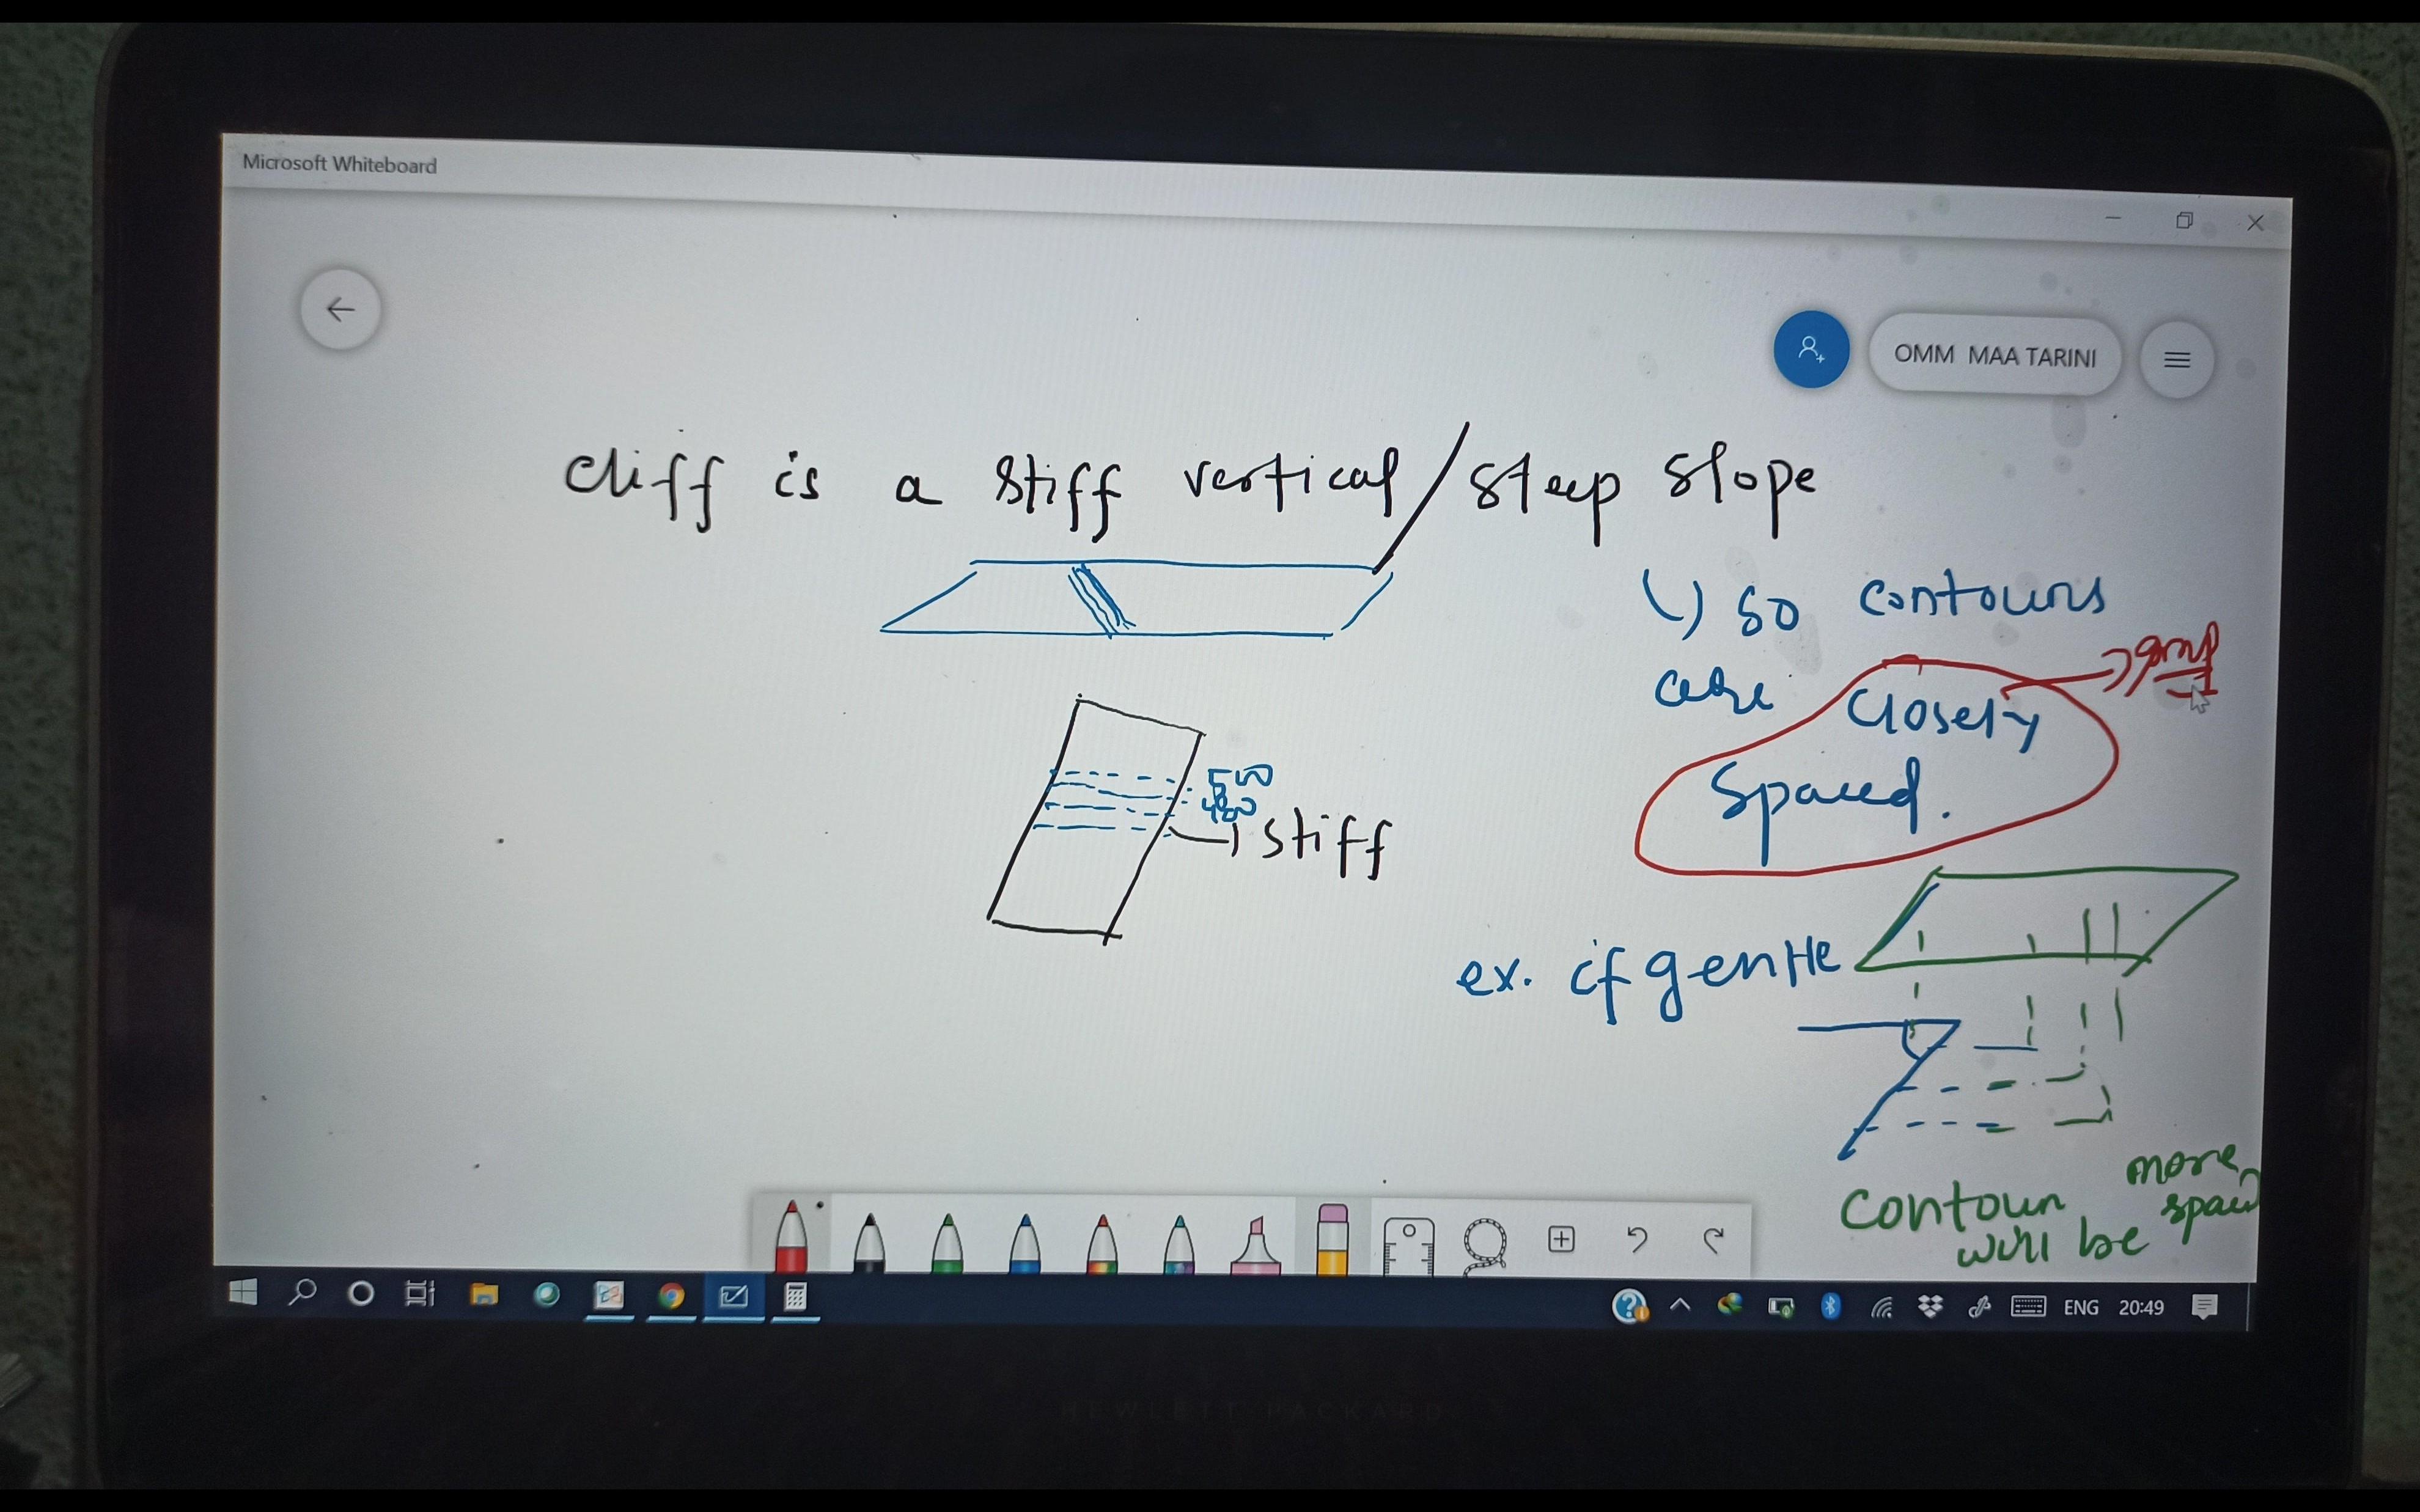 Microsoft Whiteboard
OMM MAA TARINI
cliff is a stiff vertical/steep slope
so contours
are closely
spaced.
500
480
stiff
ex. if gentle
contour will be more
ENG 20:49
HEWLETT PACKARD